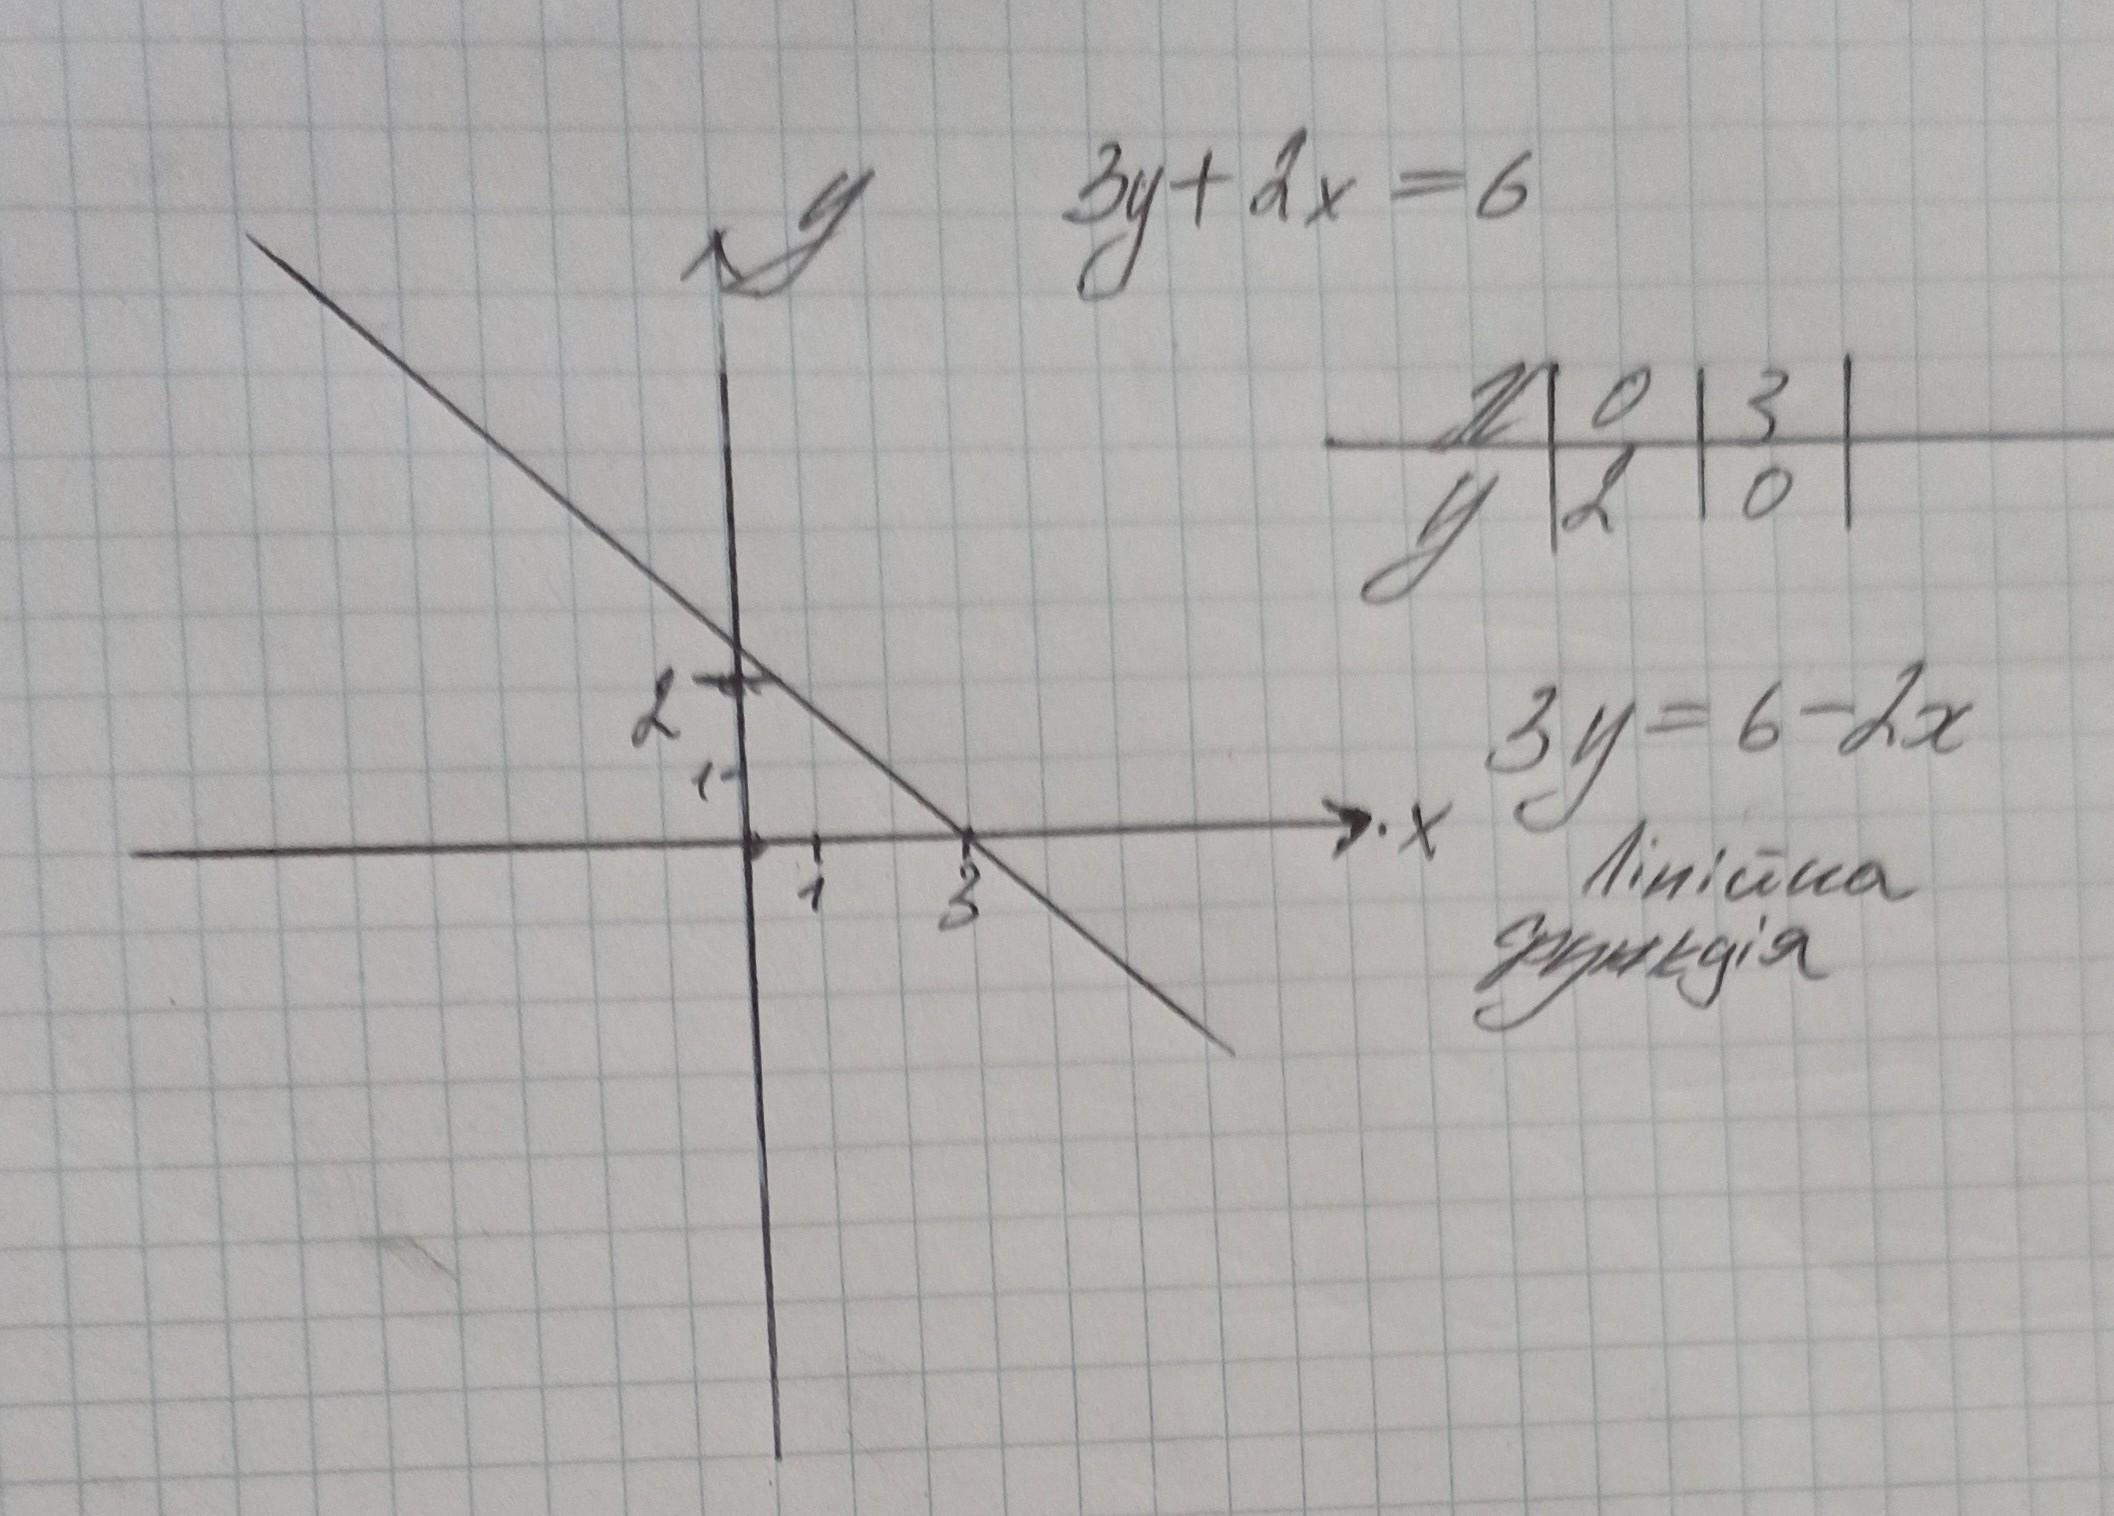 y
3y+2x=6
x | 0 | 3 |
y | 2 | 0 |
2
1
1
3
x
3y=6-2x
Лінійна
функція